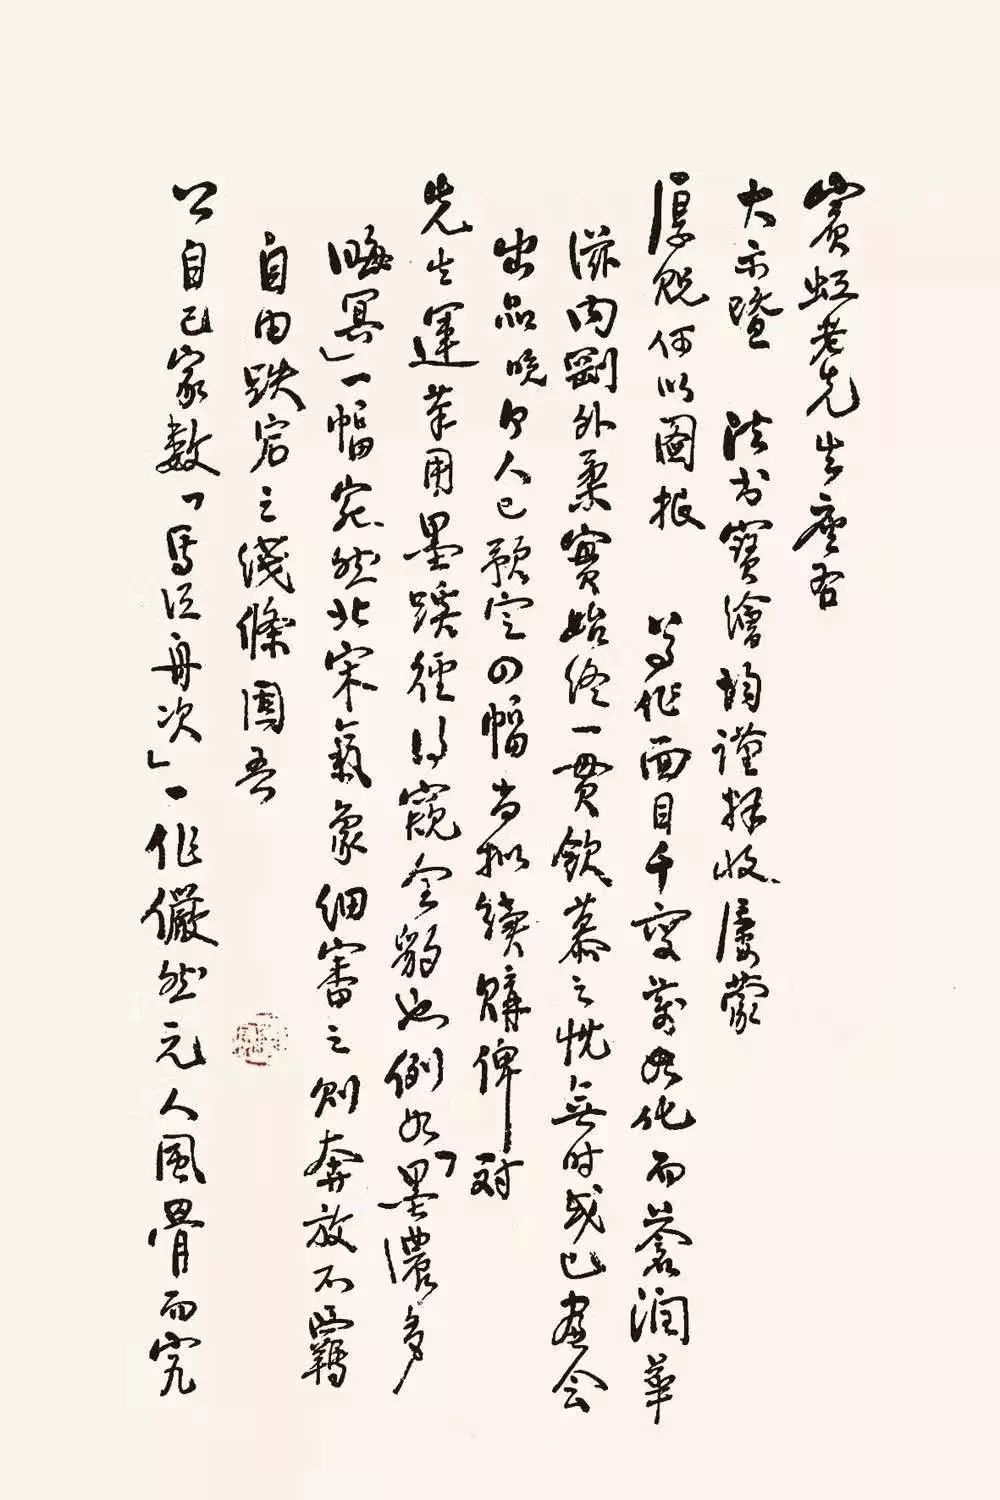 賓虹老先生座右
大示暨 法书寶繪均謹拜收屡蒙
厚貺何以圖报 尊作面目千變萬化而蒼潤華
滋内剛外柔實始終一貫欽慕之忱無时或已畫会
出品晚个人已預定四幅尚拟續購俾对
先生運筆用墨蹊徑得窺全豹也例如「墨濃多
晦冥」一幅宛然北宋氣象細審之則奔放不羈
自由跌宕之綫條固吾
公自己家數「馬江舟次」一作儼然元人風骨而究